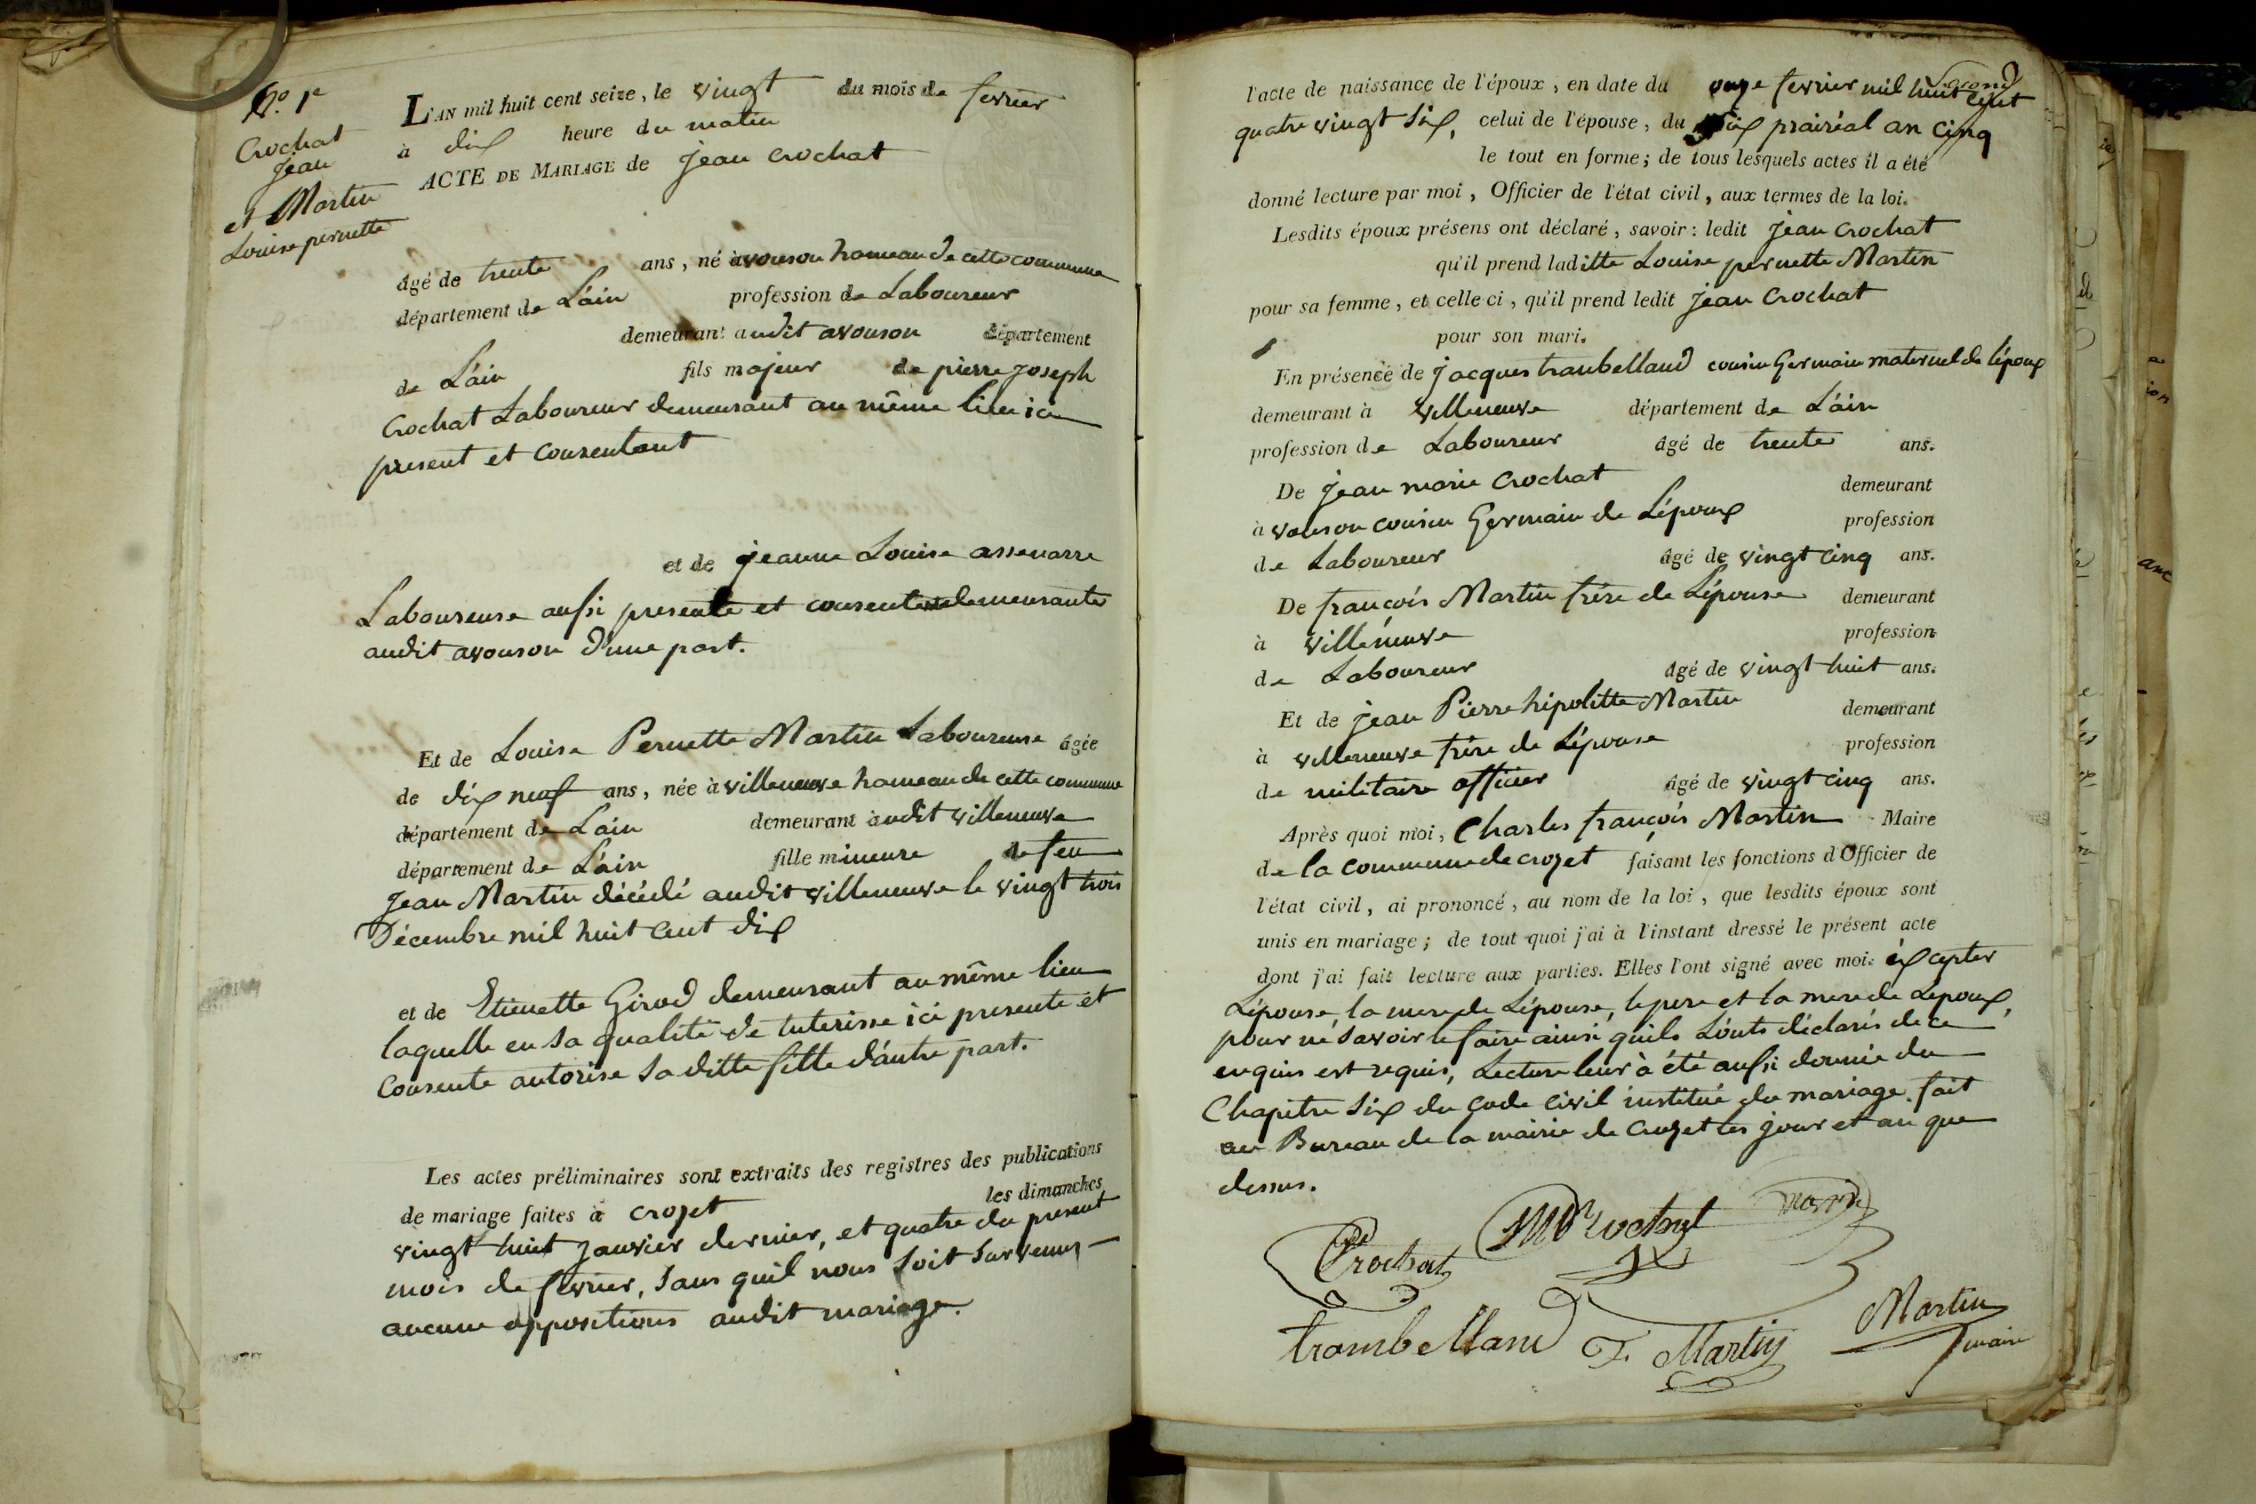 N.º 1er
Crochat
Jean
et Martin
Louise pernette
L'AN mil huit cent seize, le vingt du mois de fevrier
à dix heure du matin
ACTE DE MARIAGE de jean crochat
âgé de trente ans, né à avouson hameau de cette commune
département de L'ain profession de Laboureur
demeurant audit avouson département
de L'ain fils majeur de pierre joseph
Crochat Laboureur demeurant au même lieu ici
present et consentant
et de jeanne Louise
Laboureuse aussi presente et consentente demeurante
audit avouson d'une part.
Et de Louise Pernette Martin Laboureuse âgée
de dix neuf ans, née à villeneuve hameau de cette commune
département de L'ain demeurant audit villeneuve
département de L'ain fille mineure de feu
Jean Martin décédé audit villeneuve le vingt trois
Décembre mil huit cent dix
et de Etienette Girod demeurant au même lieu
laquelle en sa qualité de tuterisse ici presente et
Consente autorise sa ditte fille d'autre part.
Les actes préliminaires sont extraits des registres des publications
de mariage faites à crozet les dimanches
vingt huit janvier dernier, et quatre du present
mois de fevrier, sans quil nous soit survenus
aucune oppositions audit mariage.
l'acte de naissance de l'époux, en date du onze fevrier mil huit cent
quatre vingt six, celui de l'épouse, du six prairéal an cinq
le tout en forme; de tous lesquels actes il a été
donné lecture par moi, Officier de l'état civil, aux termes de la loi.
Lesdits époux présens ont déclaré, savoir: ledit jean Crochat
qu'il prend laditte Louise pernette Martin
pour sa femme, et celle ci, qu'il prend ledit jean Crochat
pour son mari.
En présence de jacques trambelland cousin Germain maternel de l'époux
demeurant à villeneuve département de L'ain
profession de Laboureur âgé de trente ans.
De jean marie Crochat demeurant
à vouson cousin Germain de L'époux profession
de Laboureur âgé de vingt cinq ans.
De françois Martin frére de L'épouse demeurant
à villeneuve profession
de Laboureur âgé de vingt huit ans.
Et de jean Pierre hipolitte Martin demeurant
à villeneuve frére de L'épouse profession
de militaire officier âgé de vingt cinq ans.
Après quoi moi, Charles françois Martin Maire
de la commune de crozet faisant les fonctions d'Officier de
l'état civil, ai prononcé, au nom de la loi, que lesdits époux sont
unis en mariage; de tout quoi j'ai à l'instant dressé le présent acte
dont j'ai fait lecture aux parties. Elles l'ont signé avec moi. éxcepter
L'épouse, la mere de L'épouse, le pere et la mere de L'époux,
pour ne savoir le faire ainsi quils L'onts déclarés de ce
enquis est requis, Lecture leur à été aussi donnée du
Chapitre six du code civil institué du mariage. fait
au Bureau de la mairie de Crozet les jour et an que
dessus.
Crochat
Martin
trambelland F. Martin Martin
maire